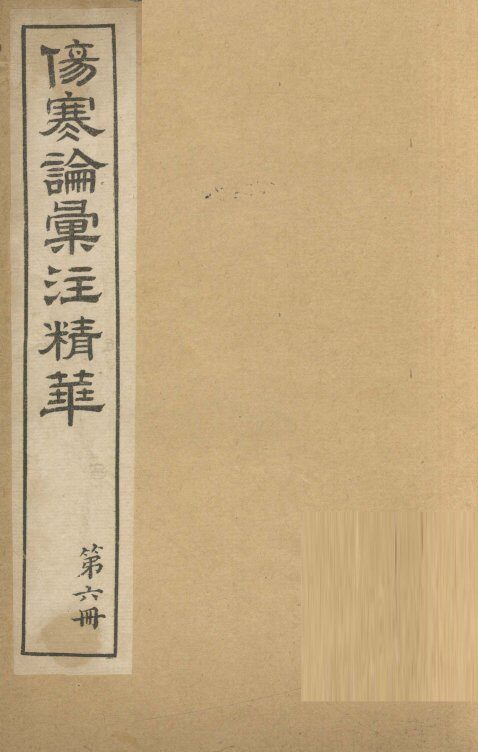 傷寒論彙注精華
第六冊